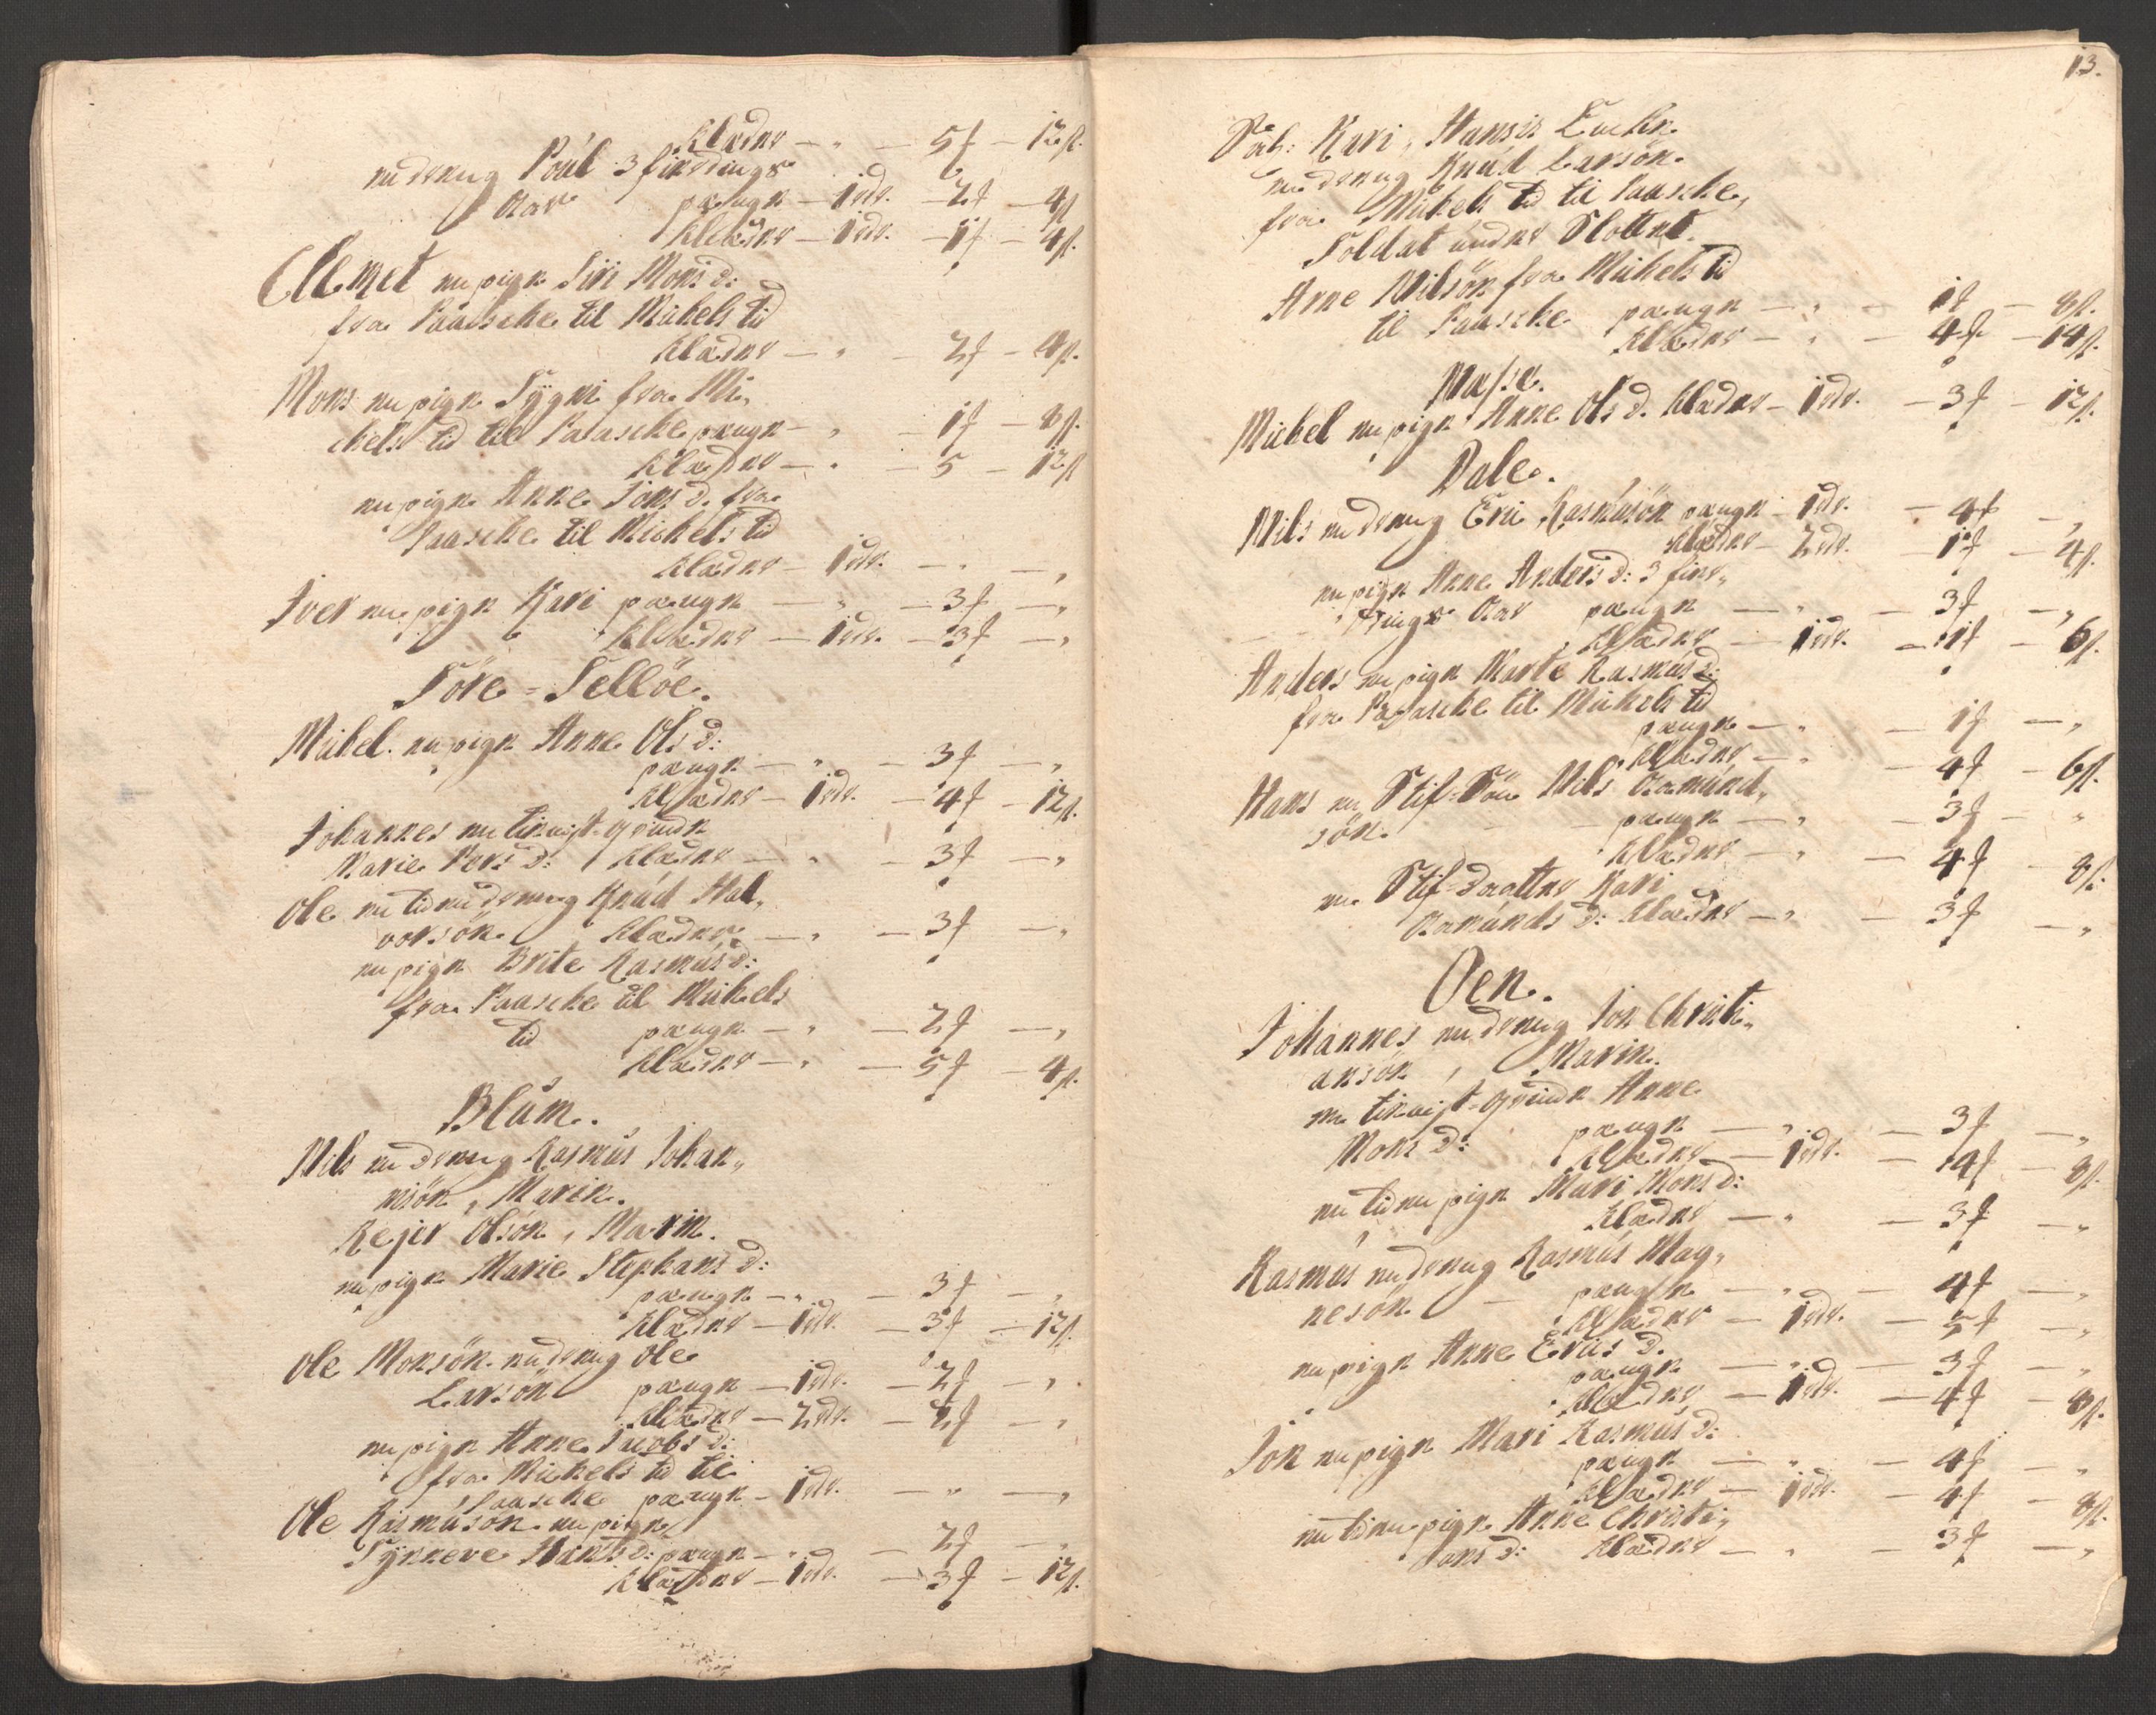 Klæder — „ — 5 ƒ — 12 ß.
en dreng Poúl 3 fierdings
Aar penge — 1 rdr. — 2 ƒ — 4 ß
Klæder — 1 rdr. — 1 ƒ — 4 ß.
Clemet en pige Siri Mons d:
fra Paasche til Michels tid
Klæder — „ — 2 ƒ — 4 ß.
Mons en pige Sygni fra Mi„
chels tid til Paasche penge — „ — 1 ƒ — 8 ß.
Klæder — „ — 5 — 12 ß
en pige Anne Jons d. fra
Paasche til Michels tid
Klæder — 1 rdr. — „ — „
Iver en pige Kari penge — „ — 3 ƒ — „
Klæder — 1 rdr. — 3 ƒ — „
Söre = Selløe.
Michel en pige Anne Ols d:
penge — „ — 3 ƒ — „
Klæder — 1 rdr. — 4 ƒ — 12 ß.
Johannes en tienist-qvinde
Marie Pers d: Klæder — „ — 3 ƒ — „
Ole en liden dreng Knúd Hal„
vorsön Klæder — „ — 3 ƒ — „
en pige Brite Rasmús d:
fra Paasche til Michels
tid penge — „ — 2 ƒ — „
Klæder — „ — 5 ƒ — 4 ß.
Blúm.
Nils en dreng Rasmús Johan„
nisön, Marin.
Rejer Olsön, Marin.
en pige Marie Stephans d:
penge — „ — 3 ƒ — „
Klæder — 1 rdr. — 3 ƒ — 12 ß.
Ole Monsön en dreng Ole
Larsön penge — 1 rdr. — 2 ƒ — „
Klæder — 2 rdr. — 2 ƒ — „
en pige Anne Jacobs d:
fra Michels tid til
Paasche penge — 1 rdr. — „ — „
Ole Rasmúsön en pige
Synneve Hans d: penge — „ — 2 ƒ — „
Klæder — 1 rdr. — 3 ƒ — 12 ß.
13.
Sal: Kari, Hansis Encke
en dreng Knúd Larsön
fra Michels tid til Paasche,
Soldat únder Slottet.
Arne Nilsön fra Michels tid
til Paasche penge — „ — 1 ƒ — 8 ß.
Klæder — „ — 4 ƒ — 14 ß.
Michel en pige Anne Ols d. Klæder — 1 rdr. — 3 ƒ — 12 ß.
Dale.
Nils en dreng Eric Rasmúsön penge — 1 rdr. — 4 ƒ — „
Klæder — 2 rdr. — 1 ƒ — 4 ß.
en pige Anne Anders d: 3 fier„
dings Aar penge — „ — 3 ƒ — „
Klæder — 1 rdr. — 1 ƒ — 6 ß.
Anders en pige Marte Rasmús d:
fra Paasche til Michels tid
penge — „ — 1 ƒ — „
Klæder — „ — 4 ƒ — 6 ß.
Hans en Stif-Sön Nils Aamúnd„
sön penge — „ — 3 ƒ — „
Klæder — „ — 4 ƒ — 8 ß.
en Stif-daatter Kari
Aamúnds d: Klæder — „ — 3 ƒ — „
Oen.
Johannes en dreng Jon Christi„
ansön, Marin.
en tienist-qvinde Anne
Mons d: penge — „ — 3 ƒ — „
Klæder — 1 rdr. — 4 ƒ — 8 ß.
en liden pige Mari Mons d:
Klæder — „ — 3 ƒ — „
Rasmús en dreng Rasmús Mag„
nesön penge — „ — 4 ƒ — „
Klæder — 1 rdr. — 5 ƒ — „
en pige Anne Erics d.
penge — „ — 3 ƒ — „
Klæder — 1 rdr. — 4 ƒ — 8 ß.
Jon en pige Mari Rasmús d:
penge — „ — 4 ƒ — „
Klæder — 1 rdr. — 4 ƒ — 8 ß.
en liden pige Anne Christi„
ans d: Klæder — „ — 3 ƒ — „